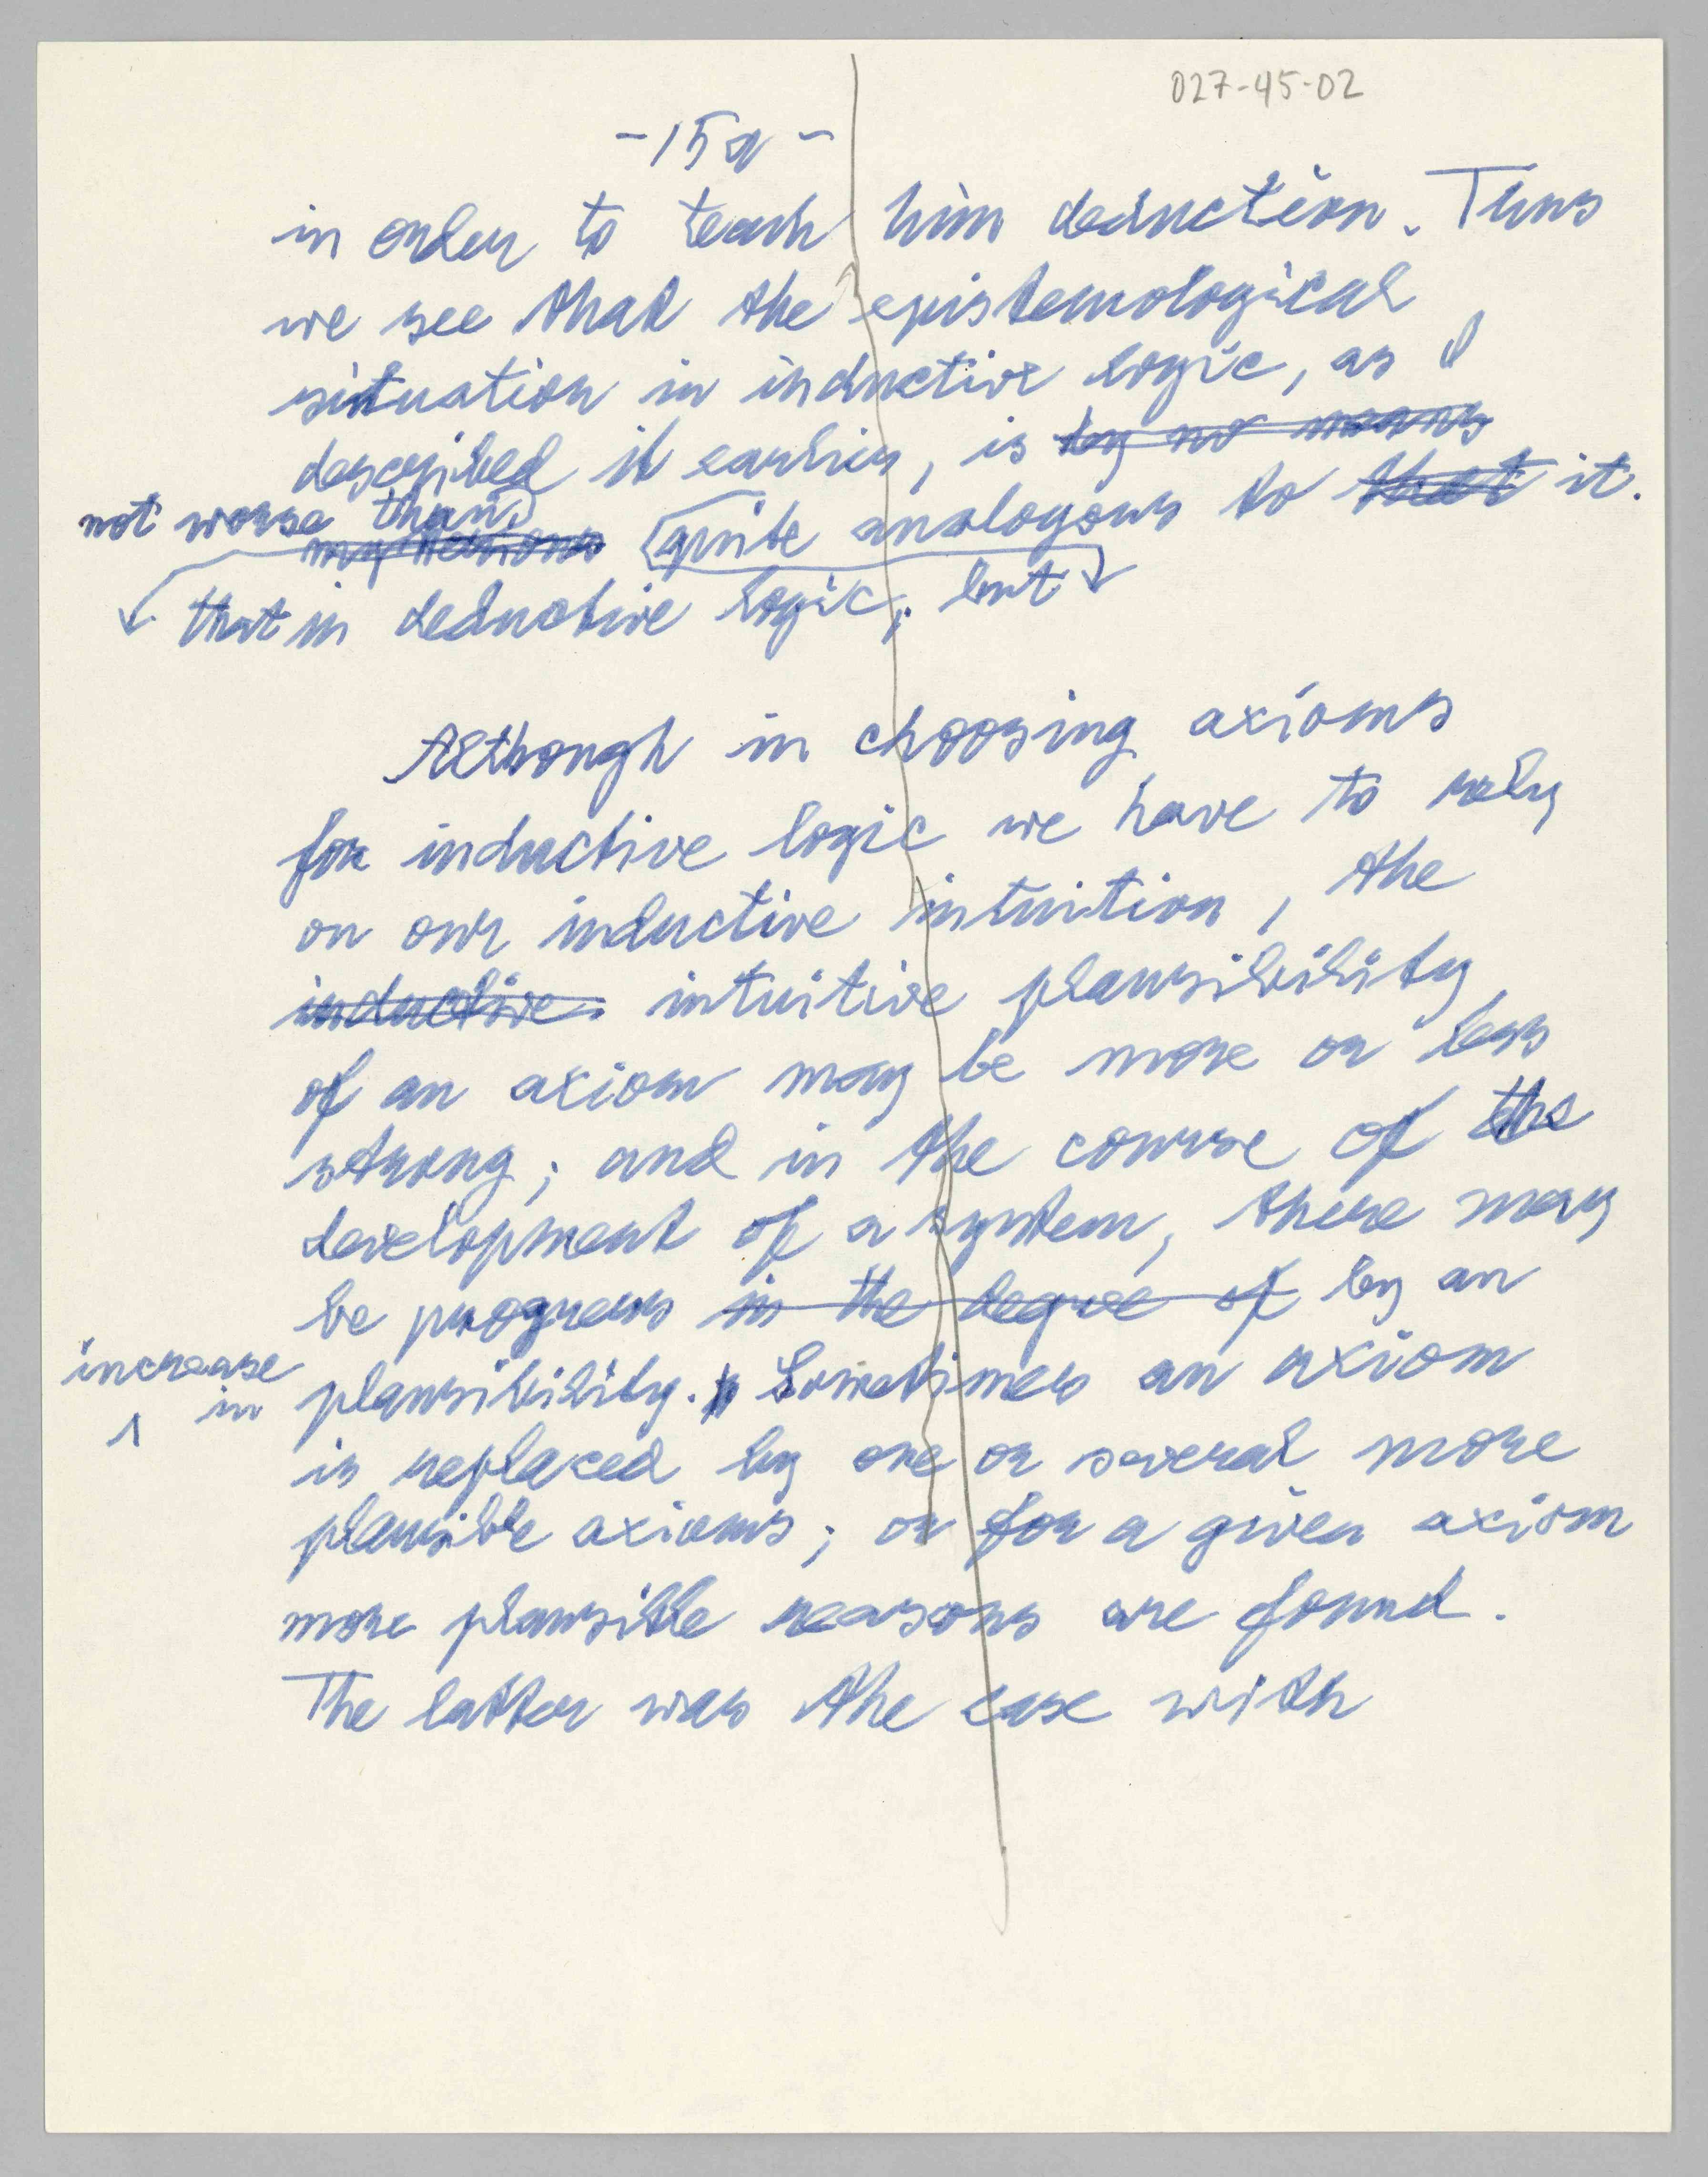 027-45-02
-15a-
in order to teach him deduction. Thus
we see that the epistemological
situation in inductive logic, as I
described it earlier, is by no means
not worse than
mysterious quite analogous to that it.
that in deductive logic, but
Although in choosing axioms
for inductive logic we have to rely
on our inductive intuition, the
inductive intuitive plausibility
of an axiom may be more or less
strong; and in the course of the
development of a system, there may
be progress in the degree of by an
increase
in plausibility. Sometimes an axiom
is replaced by one or several more
plausible axioms; or for a given axiom
more plausible reasons are found.
The latter was the case with